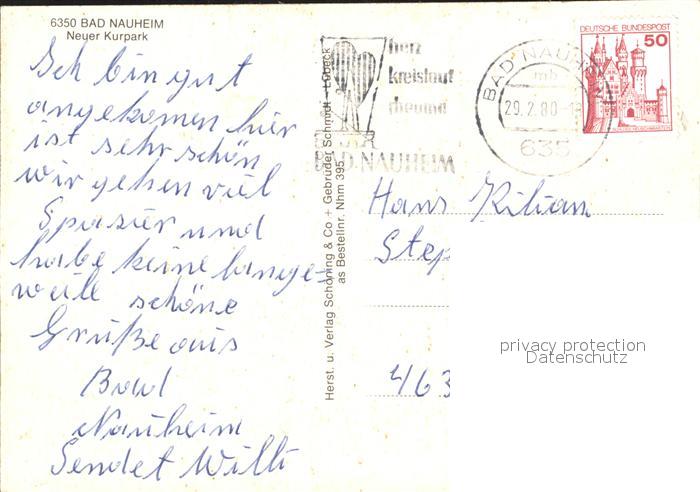 6350 BAD NAUHEIM
Neuer Kurpark
Ich bin gut
angekomen hier
ist sehr schön
wir gehen viel
Spasier und
habe keine lange-
weile schöne
Grüße aus
Bad
Nauheim
Sendet Willi
Herst. u. Verlag Schöning & Co + Gebrüder Schmidt - Lübeck
as Bestellnr. Nhm 395
herz
kreislauf
rheuma
BAD NAUHEIM
BAD NAUHEIM
mb
29.2.80
635
DEUTSCHE BUNDESPOST
50
Hans Kilian
Step
463
privacy protection
Datenschutz